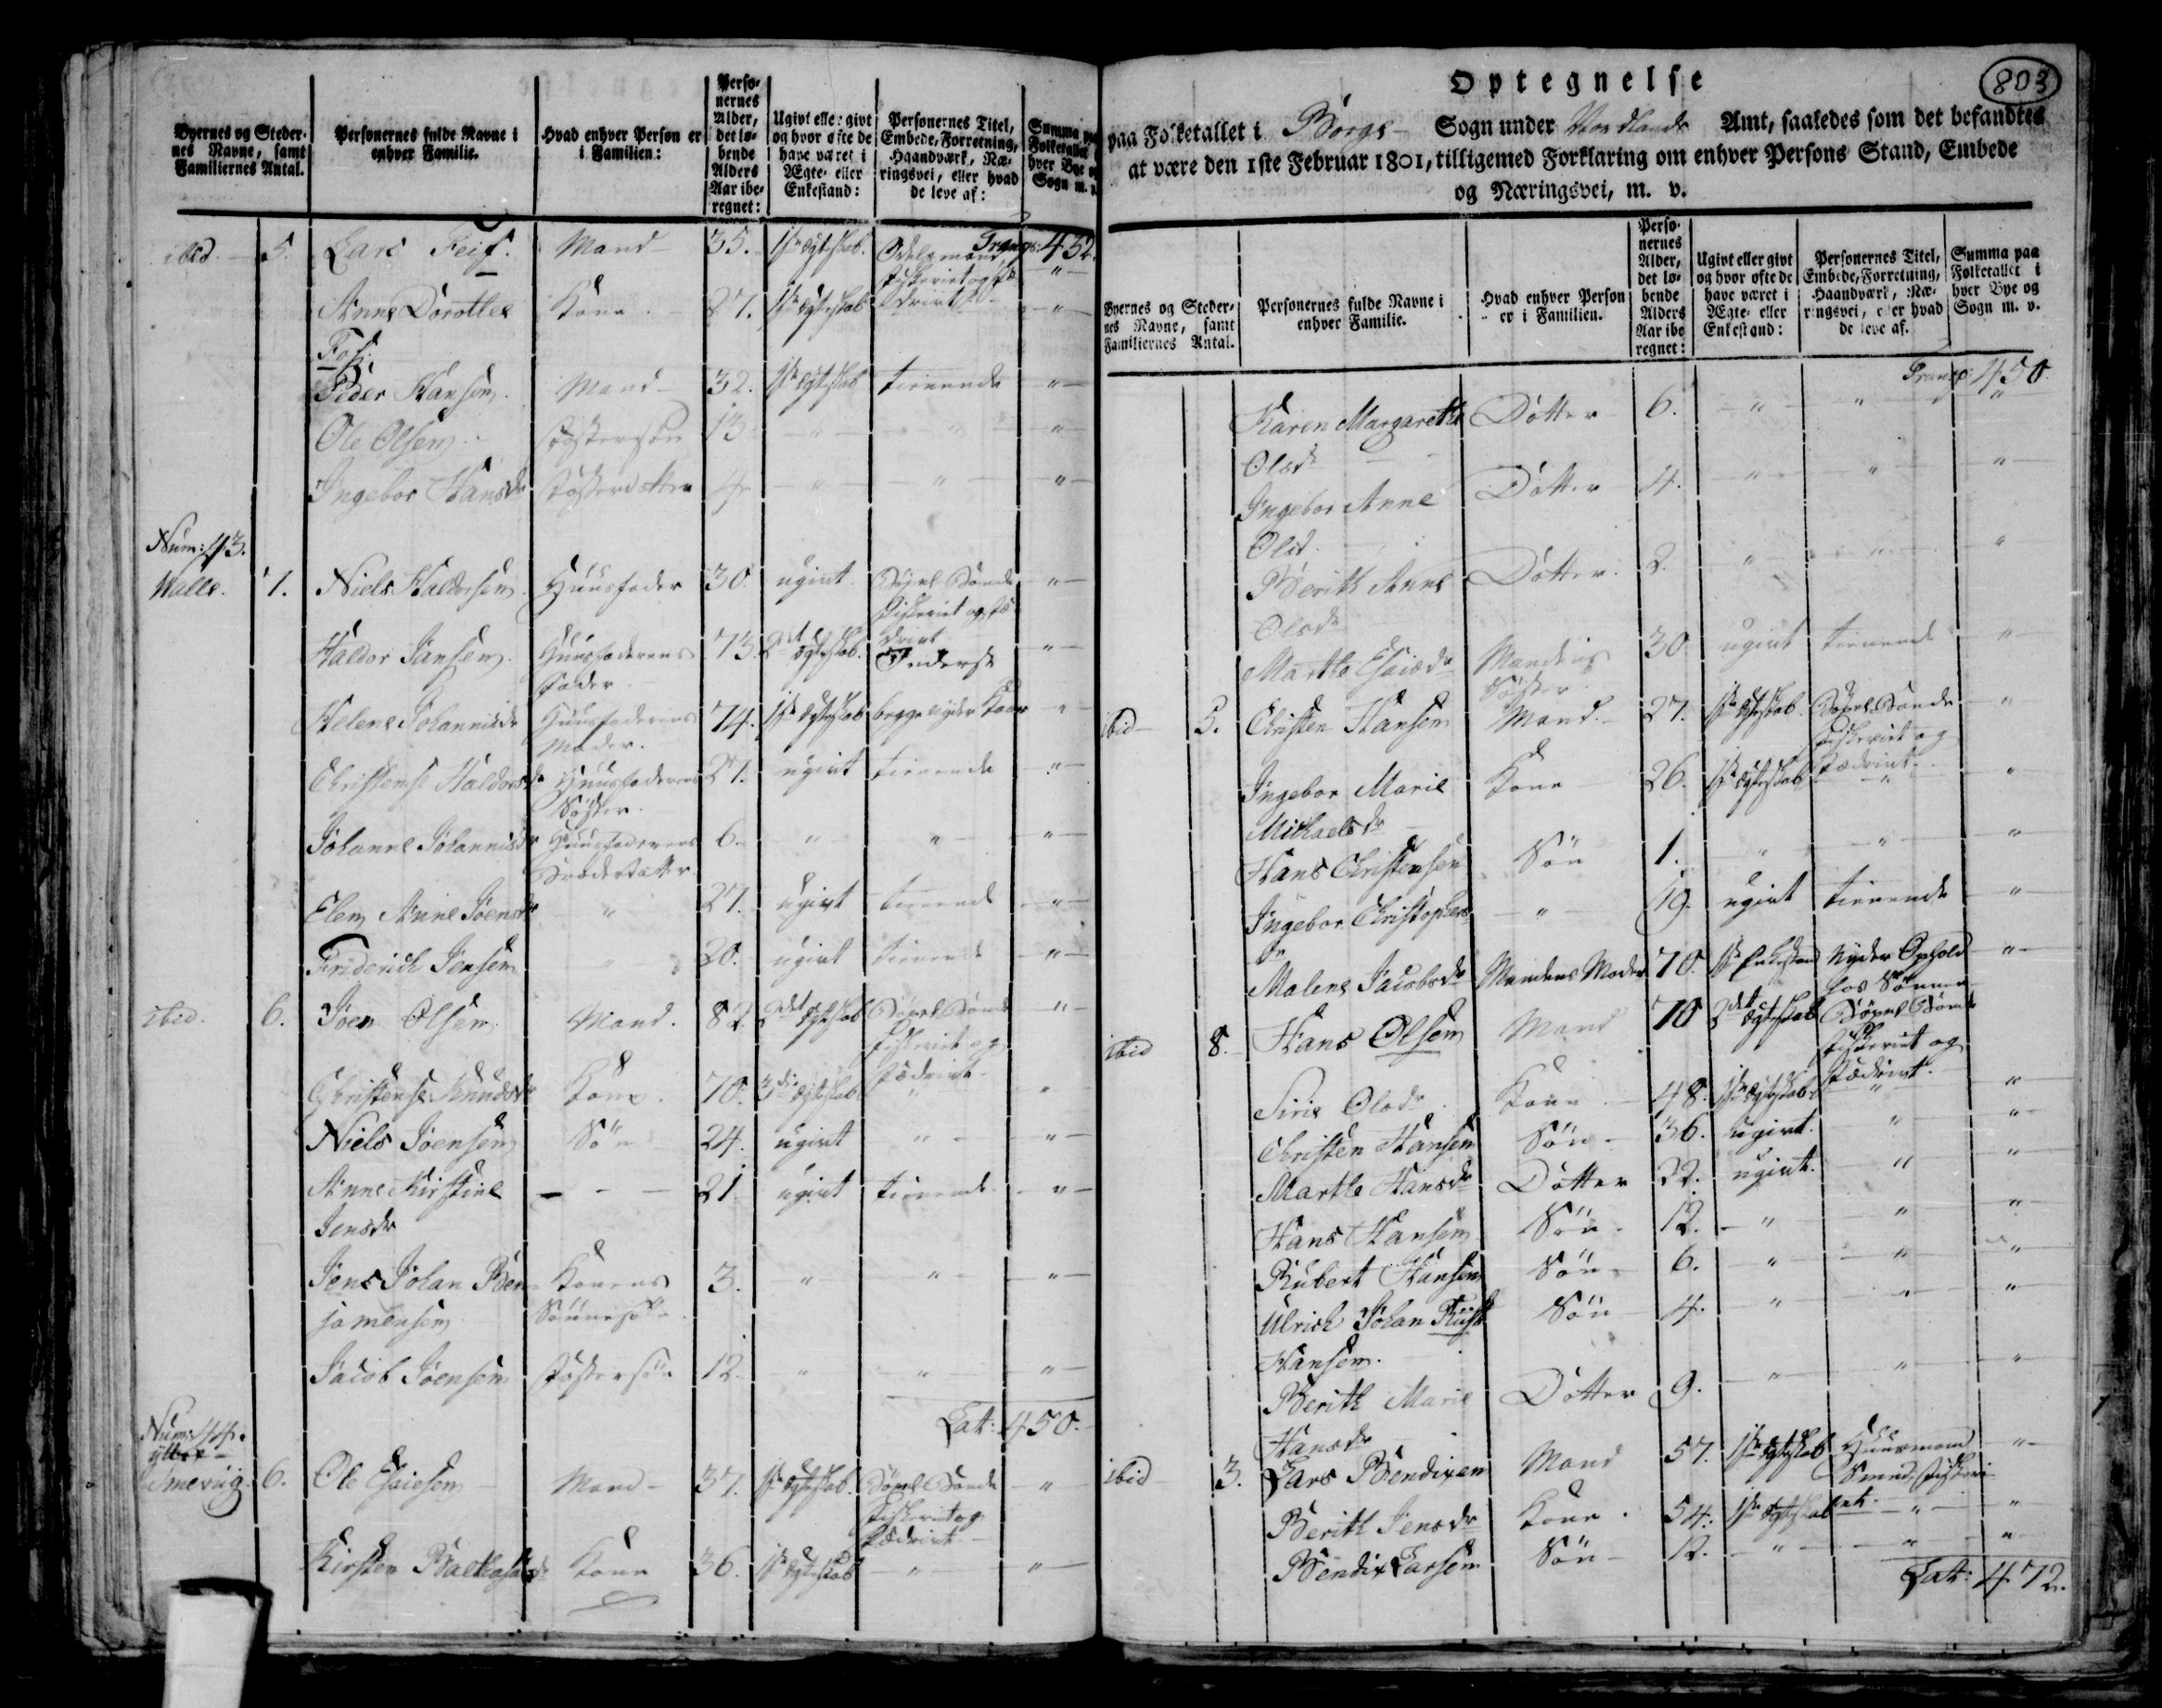 Byernes og Steder-
nes Navne, samt
Familiernes Antal.
Personernes fulde Navne i
enhver Familie.
Hvad enhver Person er
i Familien:
Perso-
nernes
Alder,
det lø-
bende
Alders
Aar ibe-
regnet:
Ugivt eller givt
og hvor ofte de
have været i
Ægte- eller
Enkestand:
Personernes Titel,
Embede, Forretning,
Haandværk, Næ-
ringsvei, eller hvad
de leve af:
Summa paa
Folketallet
hver Bye og
Sogn m. v.
Transp: 432.
ibid. 5. Lars Feif. Mand 35. 1ste ægteskab. Odelsmand "
Fiskeriet og fæ
Anne Dorothea Kone 27. 1ste ægteskab drivt "
Peder Hansen Mand 32. 1ste ægteskab tienende "
Ole Olsen Fostersön 13. " " "
Ingebor Hansdr Fosterdatter 4. " " "
Num: 43.
Walle. 7. Niels Haldorsen Huusfader 30. ugivt Böxel Bonde "
Fiskeriet og fæ
drivt
Haldor Jansen Huusfaderens 73. 2det ægteskab. Inderst "
Fader
Helene Johannisdr Huusfaderens 74. 1ste ægteskab begge nyder "
Moder.
Christense Haldorsdr Huusfaderens 27. ugivt tienende "
Söster.
Johanne Johannisdr Huusfaderens 6. " " "
Broderdatter
Elen Anne Joensdr " 27. ugivt tienende "
Friderich Jensen " 20. ugivt tienende "
ibid. 6. Joen Olsen Mand. 82. 2det ægteskab Böxel Bonde "
Fiskeriet og
Fædrivt
Christense Knudsdr Kone. 70. 3die ægteskab " "
Niels Joensen Sön 24. ugivt " "
Anne Kirstine - - - 21 ugivt tienende "
Jensdr
Jens Johan Ben Konens 3. " " "
jamensen Sönnesön
Jacob Joensen Fostersön 12. " " "
Lat: 450.
Num: 44.
yttre
Smevig. 6. Ole Esaiesen Mand 37. 1ste ægteskab. Böxel Bonde "
Fiskeriet og
Fædrivt
Kirsten Balthasarsdr Kone 36. 1ste ægteskab " "
803
Optegnelse
paa Folketallet i Borge Sogn under Nordlands Amt, saaledes som det befandtes
at være den 1ste Februar 1801, tilligemed Forklaring om enhver Persons Stand, Embede
og Næringsvei, m. v.
Byernes og Steder-
nes Navne, samt
Familiernes Antal.
Personernes fulde Navne i
enhver Familie.
Hvad enhver Person
er i Familien.
Perso-
nernes
Alder,
det lø-
bende
Alders
Aar ibe
regnet:
Ugivt eller givt
og hvor ofte de
have været i
Ægte- eller
Enkestand:
Personernes Titel,
Embede, Forretning,
Haandværk, Næ-
ringsvei, eller hvad
de leve af.
Summa paa
Folketallet i
hver Bye og
Sogn m. v.
Transp: 450.
Karen Margarethe Dotter 6. " " "
Olsdr
Ingebor Anne Dotter 4. " " "
Olsd.
Berith Anne Dotter. 2. " " "
Olsdr
Marthe Esaiædr Mandens 30 ugivt tienende "
Söster.
ibid 5. Christen Hansen Mand. 27. 1ste ægteskab. Böxel Bonde "
Fiskeriet og
Fædrivt.
Ingebor Marie Kone 26. 1ste ægteskab " "
Michaelsdr
Hans Christensen Sön 1. " " "
Ingebor Christophers " 19. ugivt tienende "
dr
Malene Jacobsdr Mandens Moder 70. 1ste Enkestand Nyder Ophold "
hos Sönnen
ibid 8. Hans Olsen Mand 70 2det ægteskab Böxel Bonde
Fiskeriet og
Fædrivt.
Siris Olsdr Kone 48. 1ste ægteskab " "
Christen Hansen Sön 36. ugivt. " "
Marthe Hansdr Dotter 22. ugivt. " "
Hans Hansen Sön 12. " " "
Rubert Hansen Sön 6. " " "
Ulrich Johan Sön 4. " " "
Hansen.
Berith Marie Dotter 9. " " "
Hansdr
ibid 3. Lars Bendixen Mand 57. 1ste ægteskab Huusmand "
Smed, Fiskeri
Berith Jensdr Kone. 54. 1ste ægteskab et. " "
Bendix Larsen Sön 12. " " "
Lat: 472.